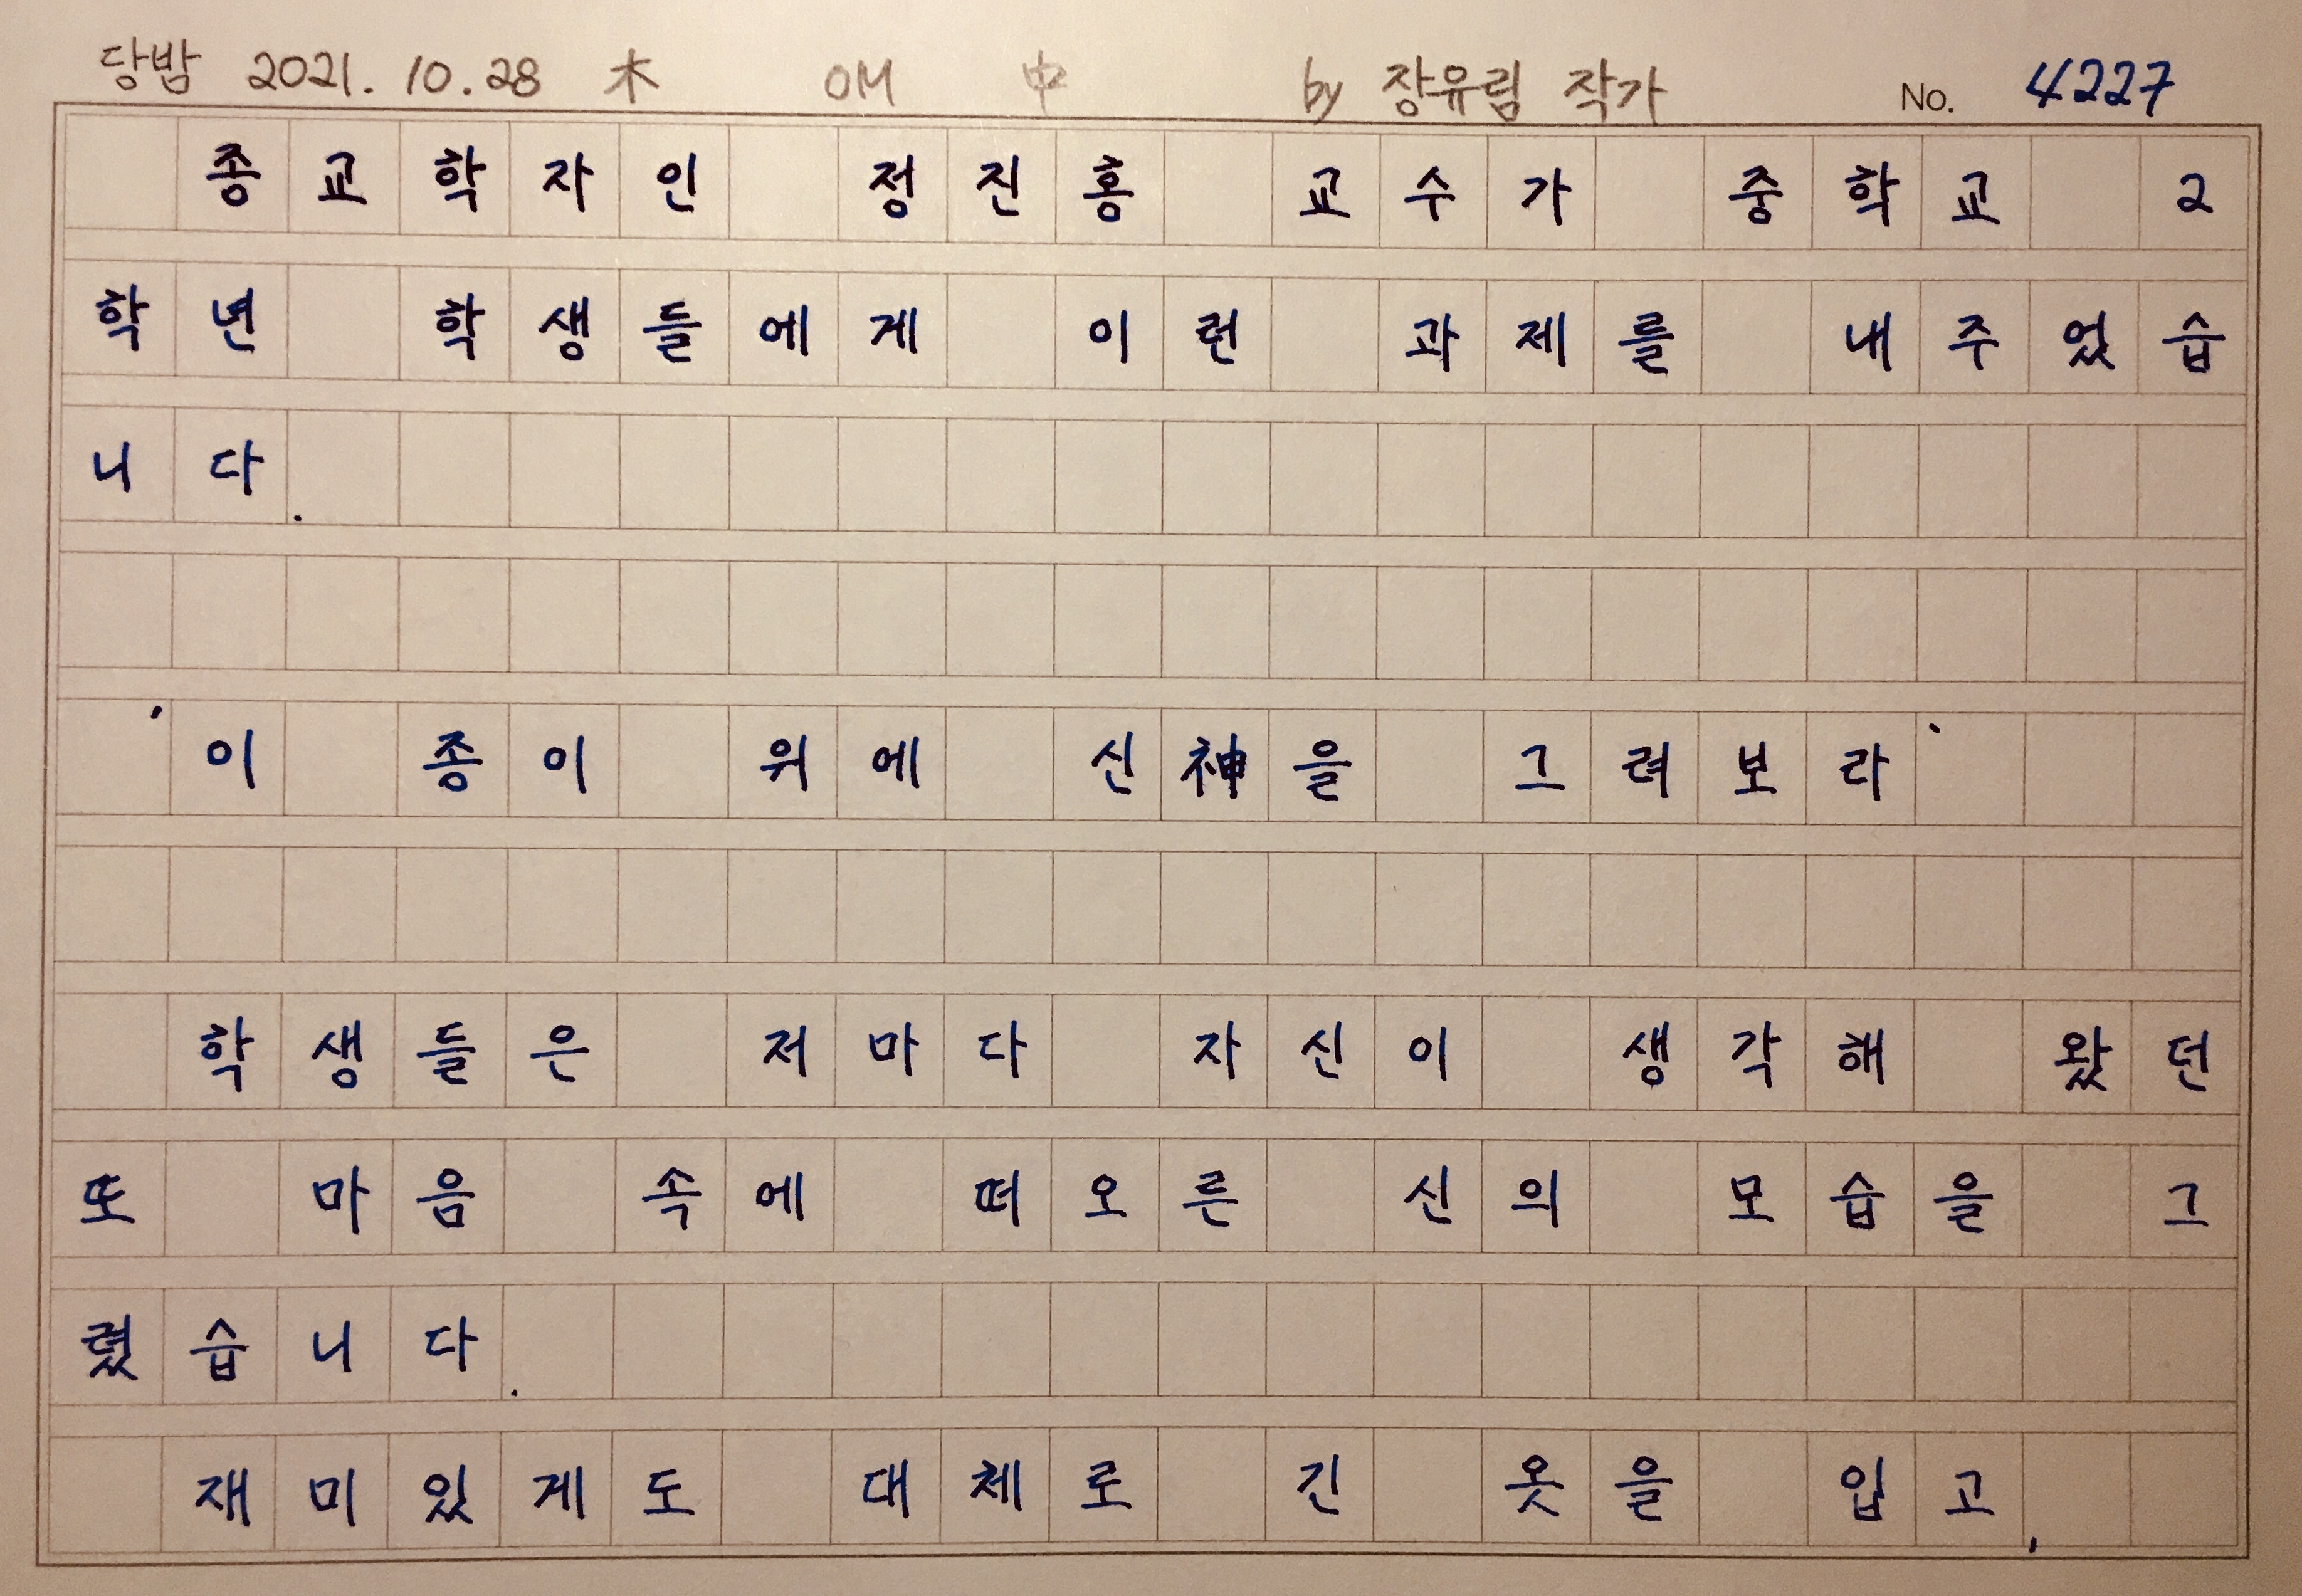 당밤 2021. 10. 28 木 OM 中 by 장유림 작가 No. 4227
종교학자인 정진홍 교수가 중학교 2
학년 학생들에게 이런 과제를 내주었습
니다.
'이 종이 위에 신神을 그려보라'
학생들은 저마다 자신이 생각해 왔던
또 마음 속에 떠오른 신의 모습을 그
렸습니다.
재미있게도 대체로 긴 옷을 입고,